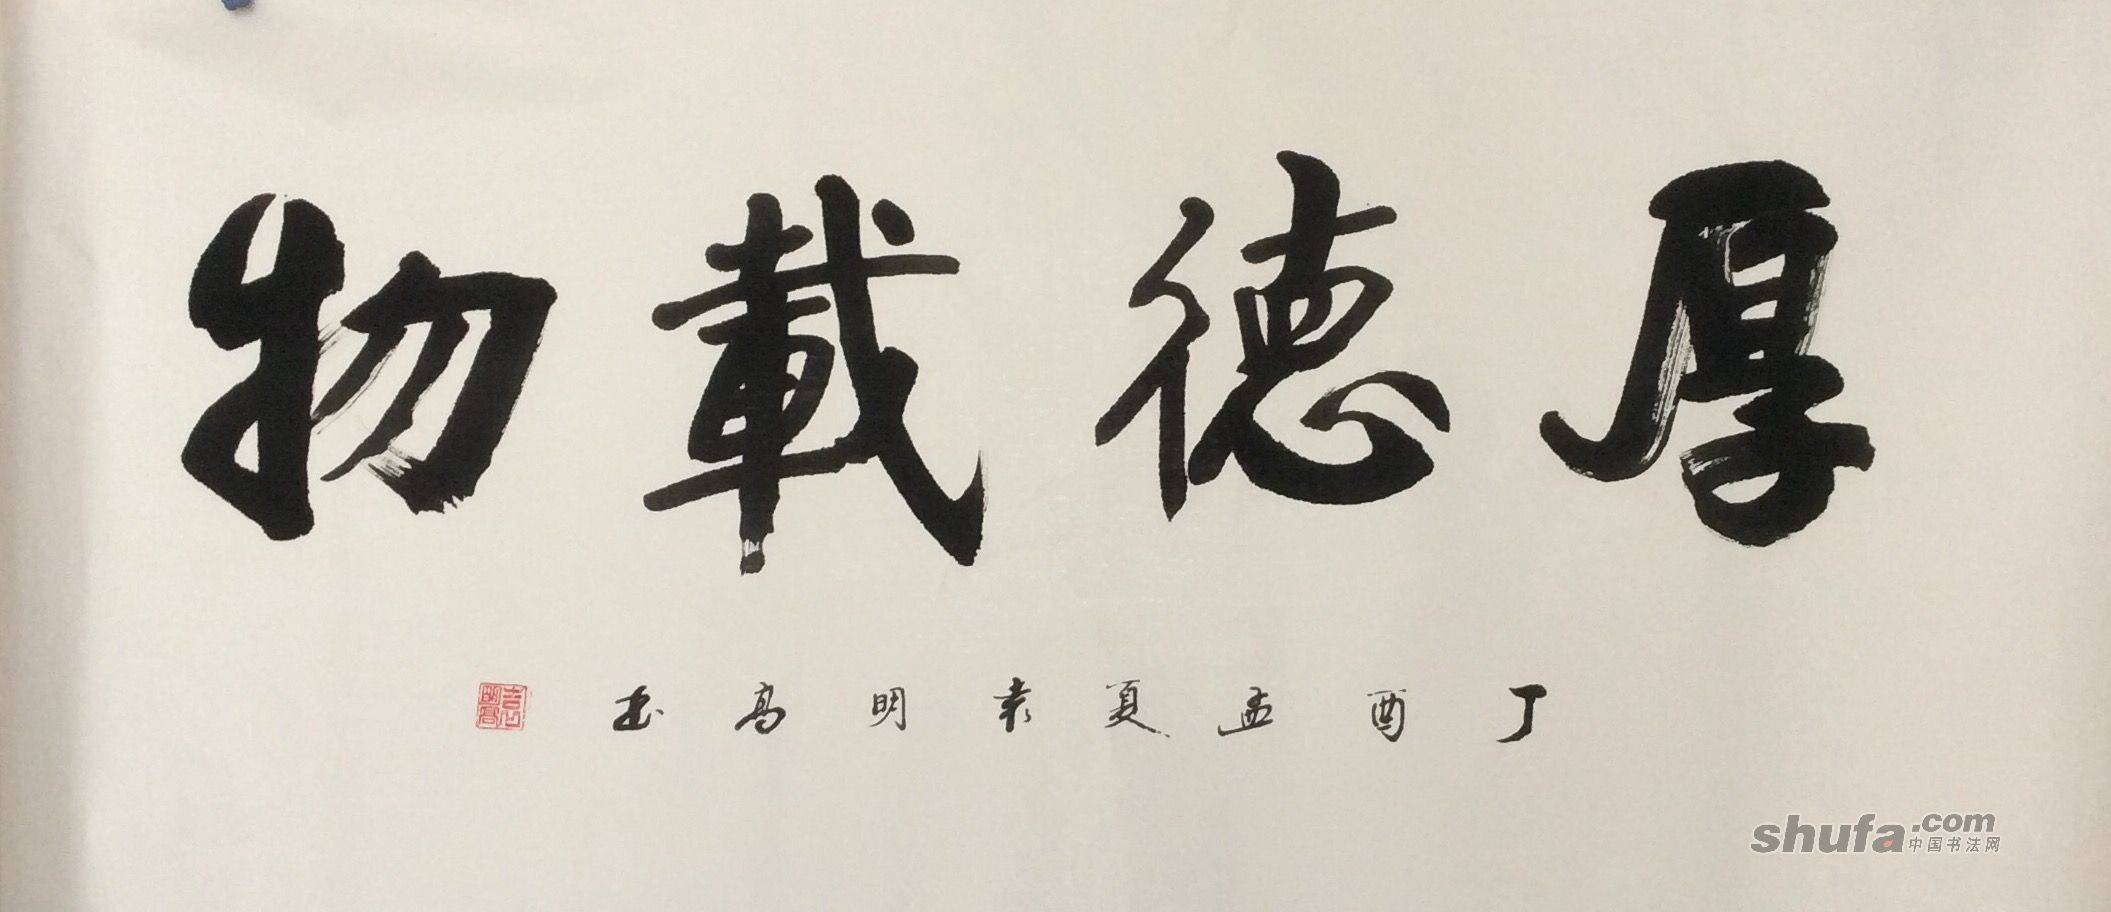 厚德載物
丁酉孟夏袁明高书
袁明高
shufa.com
中国书法网